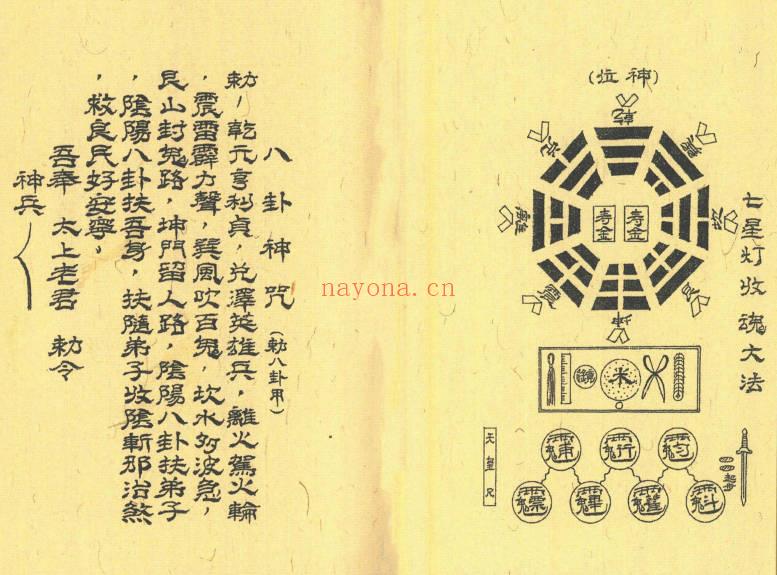 七星灯收魂大法
(神位)
乾
巽
兌
離
震
坤
寿金
寿金
米
天皇尺
八卦神咒(勅八卦用)
勅/乾元亨利貞,兌澤英雄兵,離火駕火輪
,震雷霹力聲,巽風吹百鬼,坎水如波急,
艮山封鬼路,坤門留人路,陰陽八卦扶弟子
,陰陽八卦扶吾身,扶隨弟子收陰斬邪治煞
,救良民好安寧,
吾奉 太上老君 勅令
神兵
nayona.cn